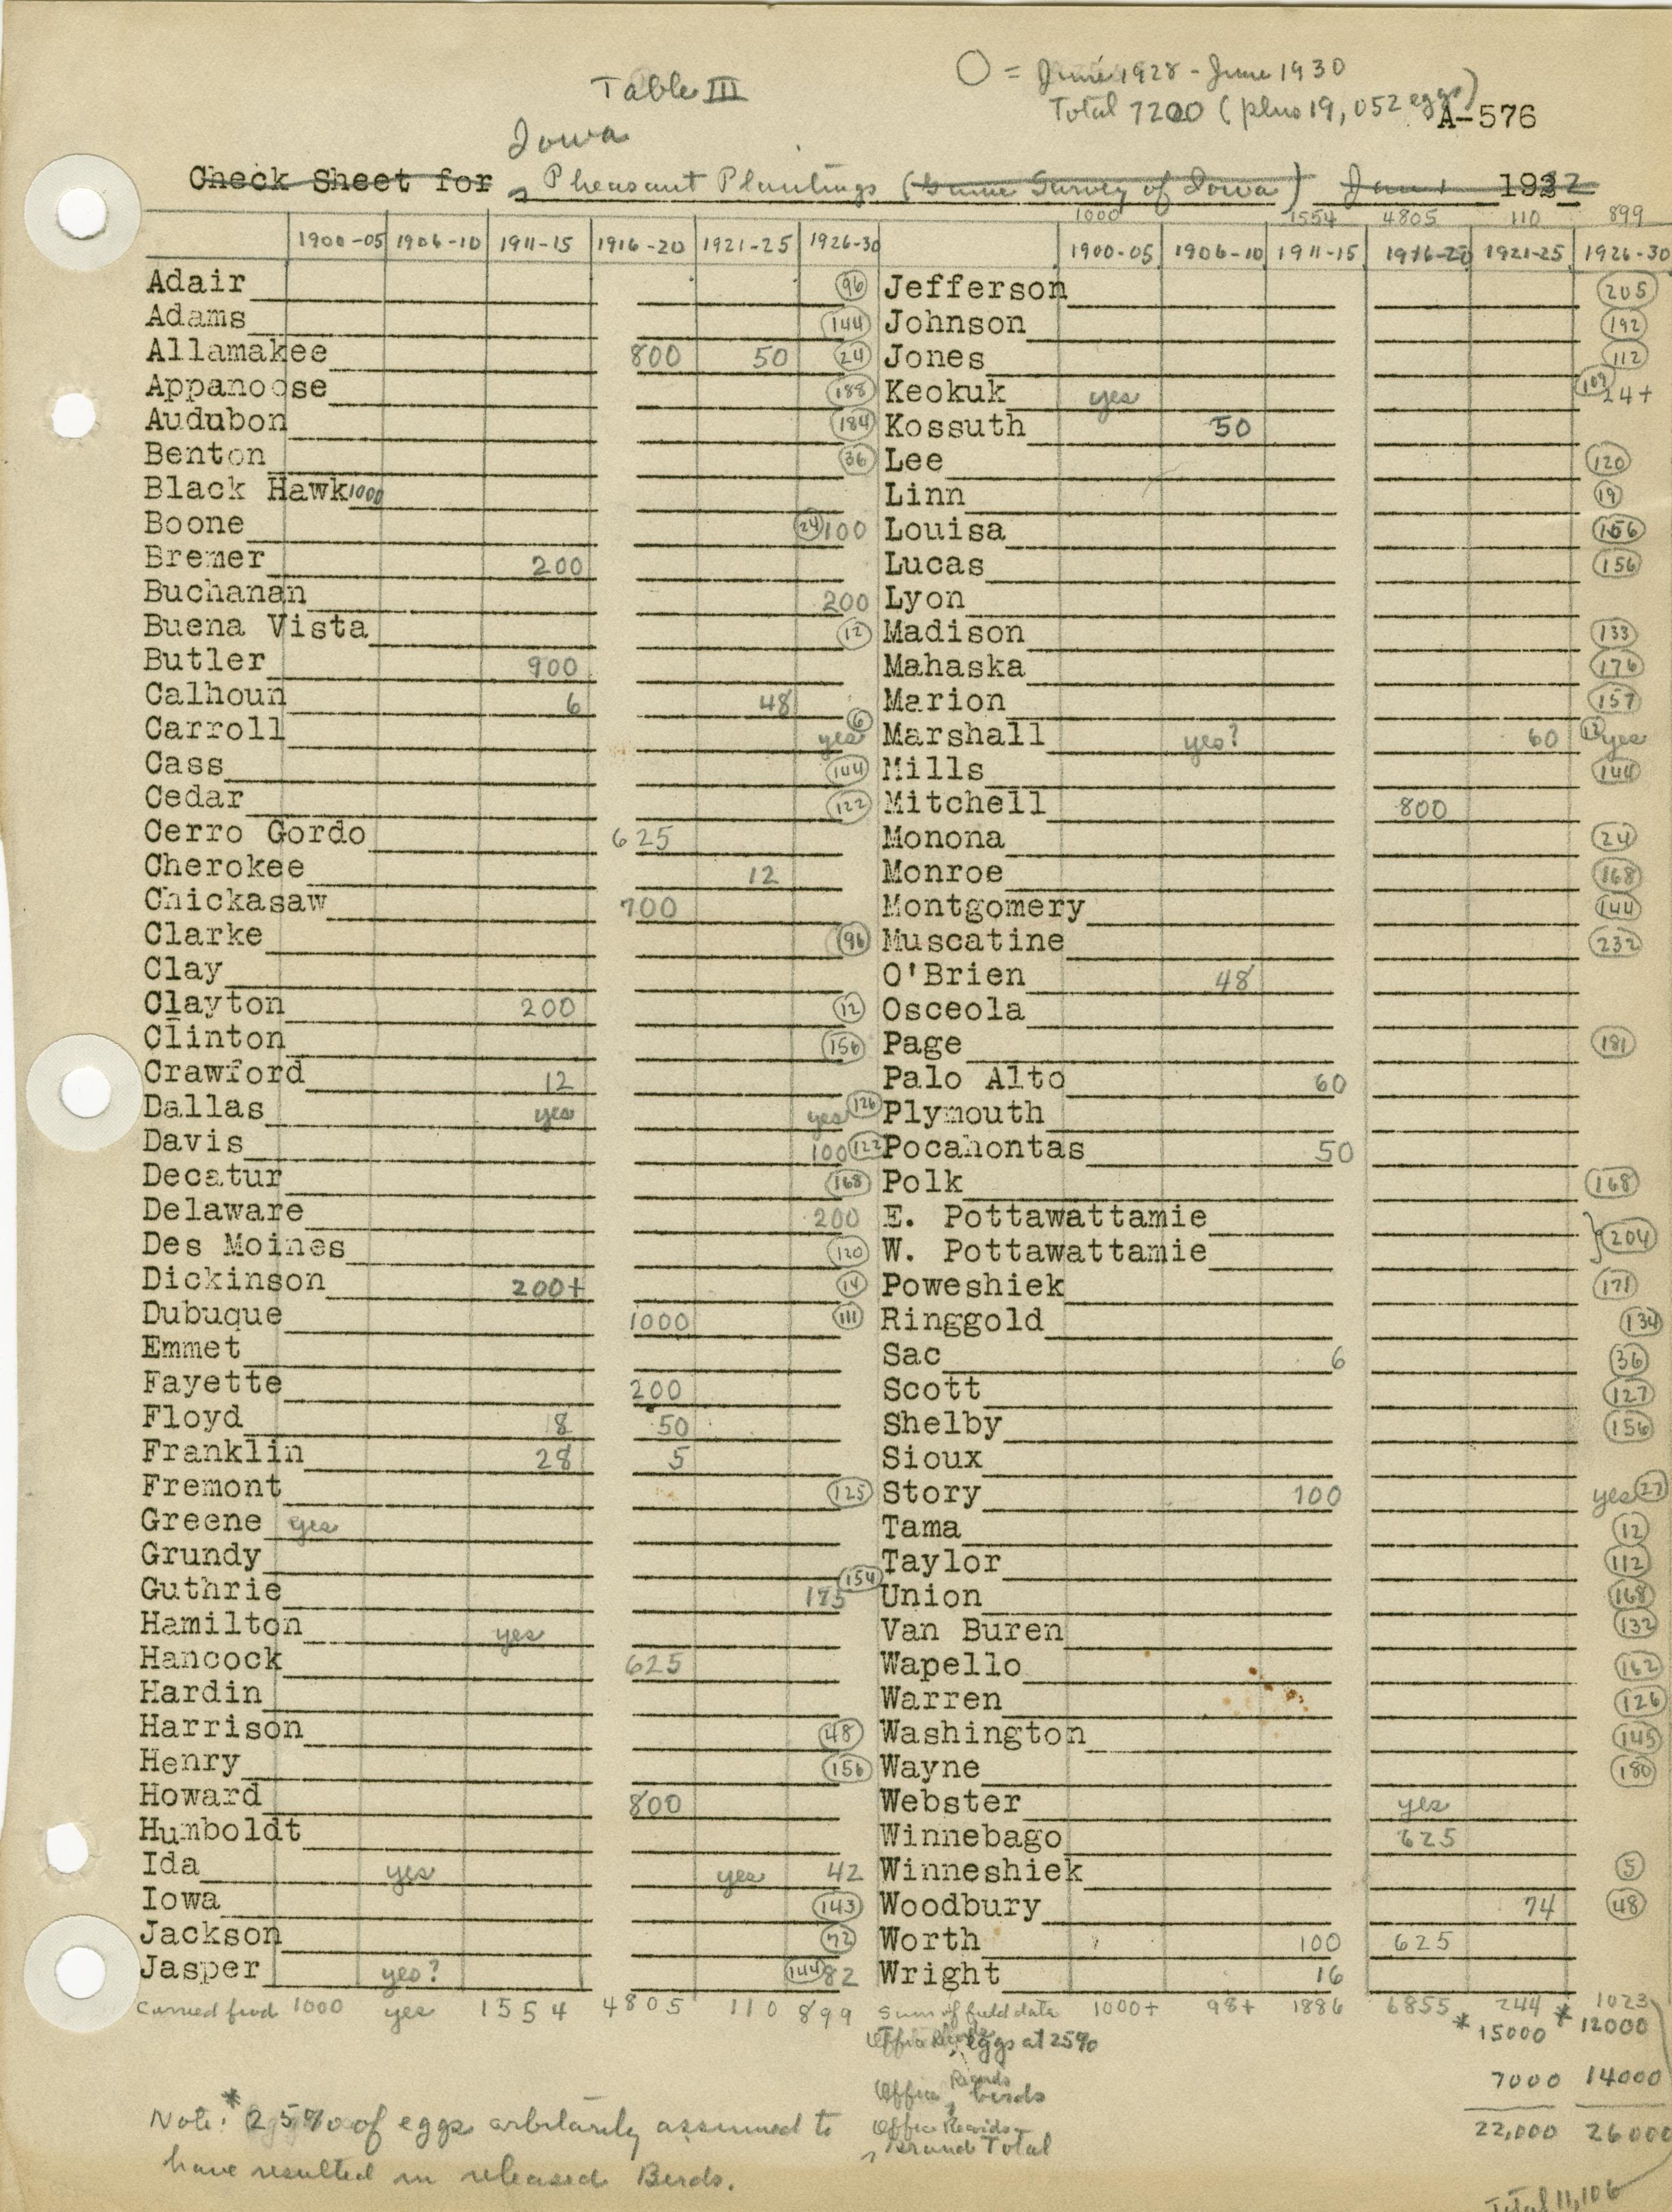 Table III
O = June 1928 - June 1930
Total 7200 (plus 19,052 eggs)
A-576
Iowa
Check Sheet for Pheasant Plantings (Game Survey of Iowa) Jan 1 1932
1000 1554 4805 110 899
1900-05 1906-10 1911-15 1916-20 1921-25 1926-30 1900-05 1906-10 1911-15 1916-20 1921-25 1926-30
Adair 96 Jefferson 205
Adams 144 Johnson 192
Allamakee 800 50 24 Jones 112
Appanoose 188 Keokuk yes 109 24+
Audubon 184 Kossuth 50
Benton 36 Lee 120
Black Hawk 1000 Linn 19
Boone 24 100 Louisa 156
Bremer 200 Lucas 156
Buchanan 200 Lyon
Buena Vista 12 Madison 133
Butler 900 Mahaska 176
Calhoun 6 48 Marion 157
Carroll yes 6 Marshall yes? 60 12 yes
Cass 144 Mills 144
Cedar 122 Mitchell 800
Cerro Gordo 625 Monona 24
Cherokee 12 Monroe 168
Chickasaw 700 Montgomery 144
Clarke 96 Muscatine 232
Clay O'Brien 48
Clayton 200 12 Osceola
Clinton 156 Page 181
Crawford 12 Palo Alto 60
Dallas yes yes 126 Plymouth
Davis 100 122 Pocahontas 50
Decatur 168 Polk 168
Delaware 200 E. Pottawattamie
Des Moines 120 W. Pottawattamie } 204
Dickinson 200+ 14 Poweshiek 171
Dubuque 1000 111 Ringgold 134
Emmet Sac 6 36
Fayette 200 Scott 127
Floyd 18 50 Shelby 156
Franklin 28 5 Sioux
Fremont 125 Story 100 yes 27
Greene yes Tama 12
Grundy Taylor 112
Guthrie 175 154 Union 168
Hamilton yes Van Buren 132
Hancock 625 Wapello 162
Hardin Warren 126
Harrison 48 Washington 145
Henry 156 Wayne 180
Howard 800 Webster yes
Humboldt Winnebago 625
Ida yes yes 42 Winneshiek 5
Iowa 143 Woodbury 74 48
Jackson 72 Worth 100 625
Jasper yes? 144 82 Wright 16
Carried fwd 1000 yes 1554 4805 110 899 Sum of field data 1000+ 98+ 1886 6855 244 1023
Office Records eggs at 25% * 15000 * 12000
Office Records birds 7000 14000
Office Records Grand Total 22,000 26000
Note: * 25% of eggs arbitrarily assumed to
have resulted in released Birds.
Total 11,106